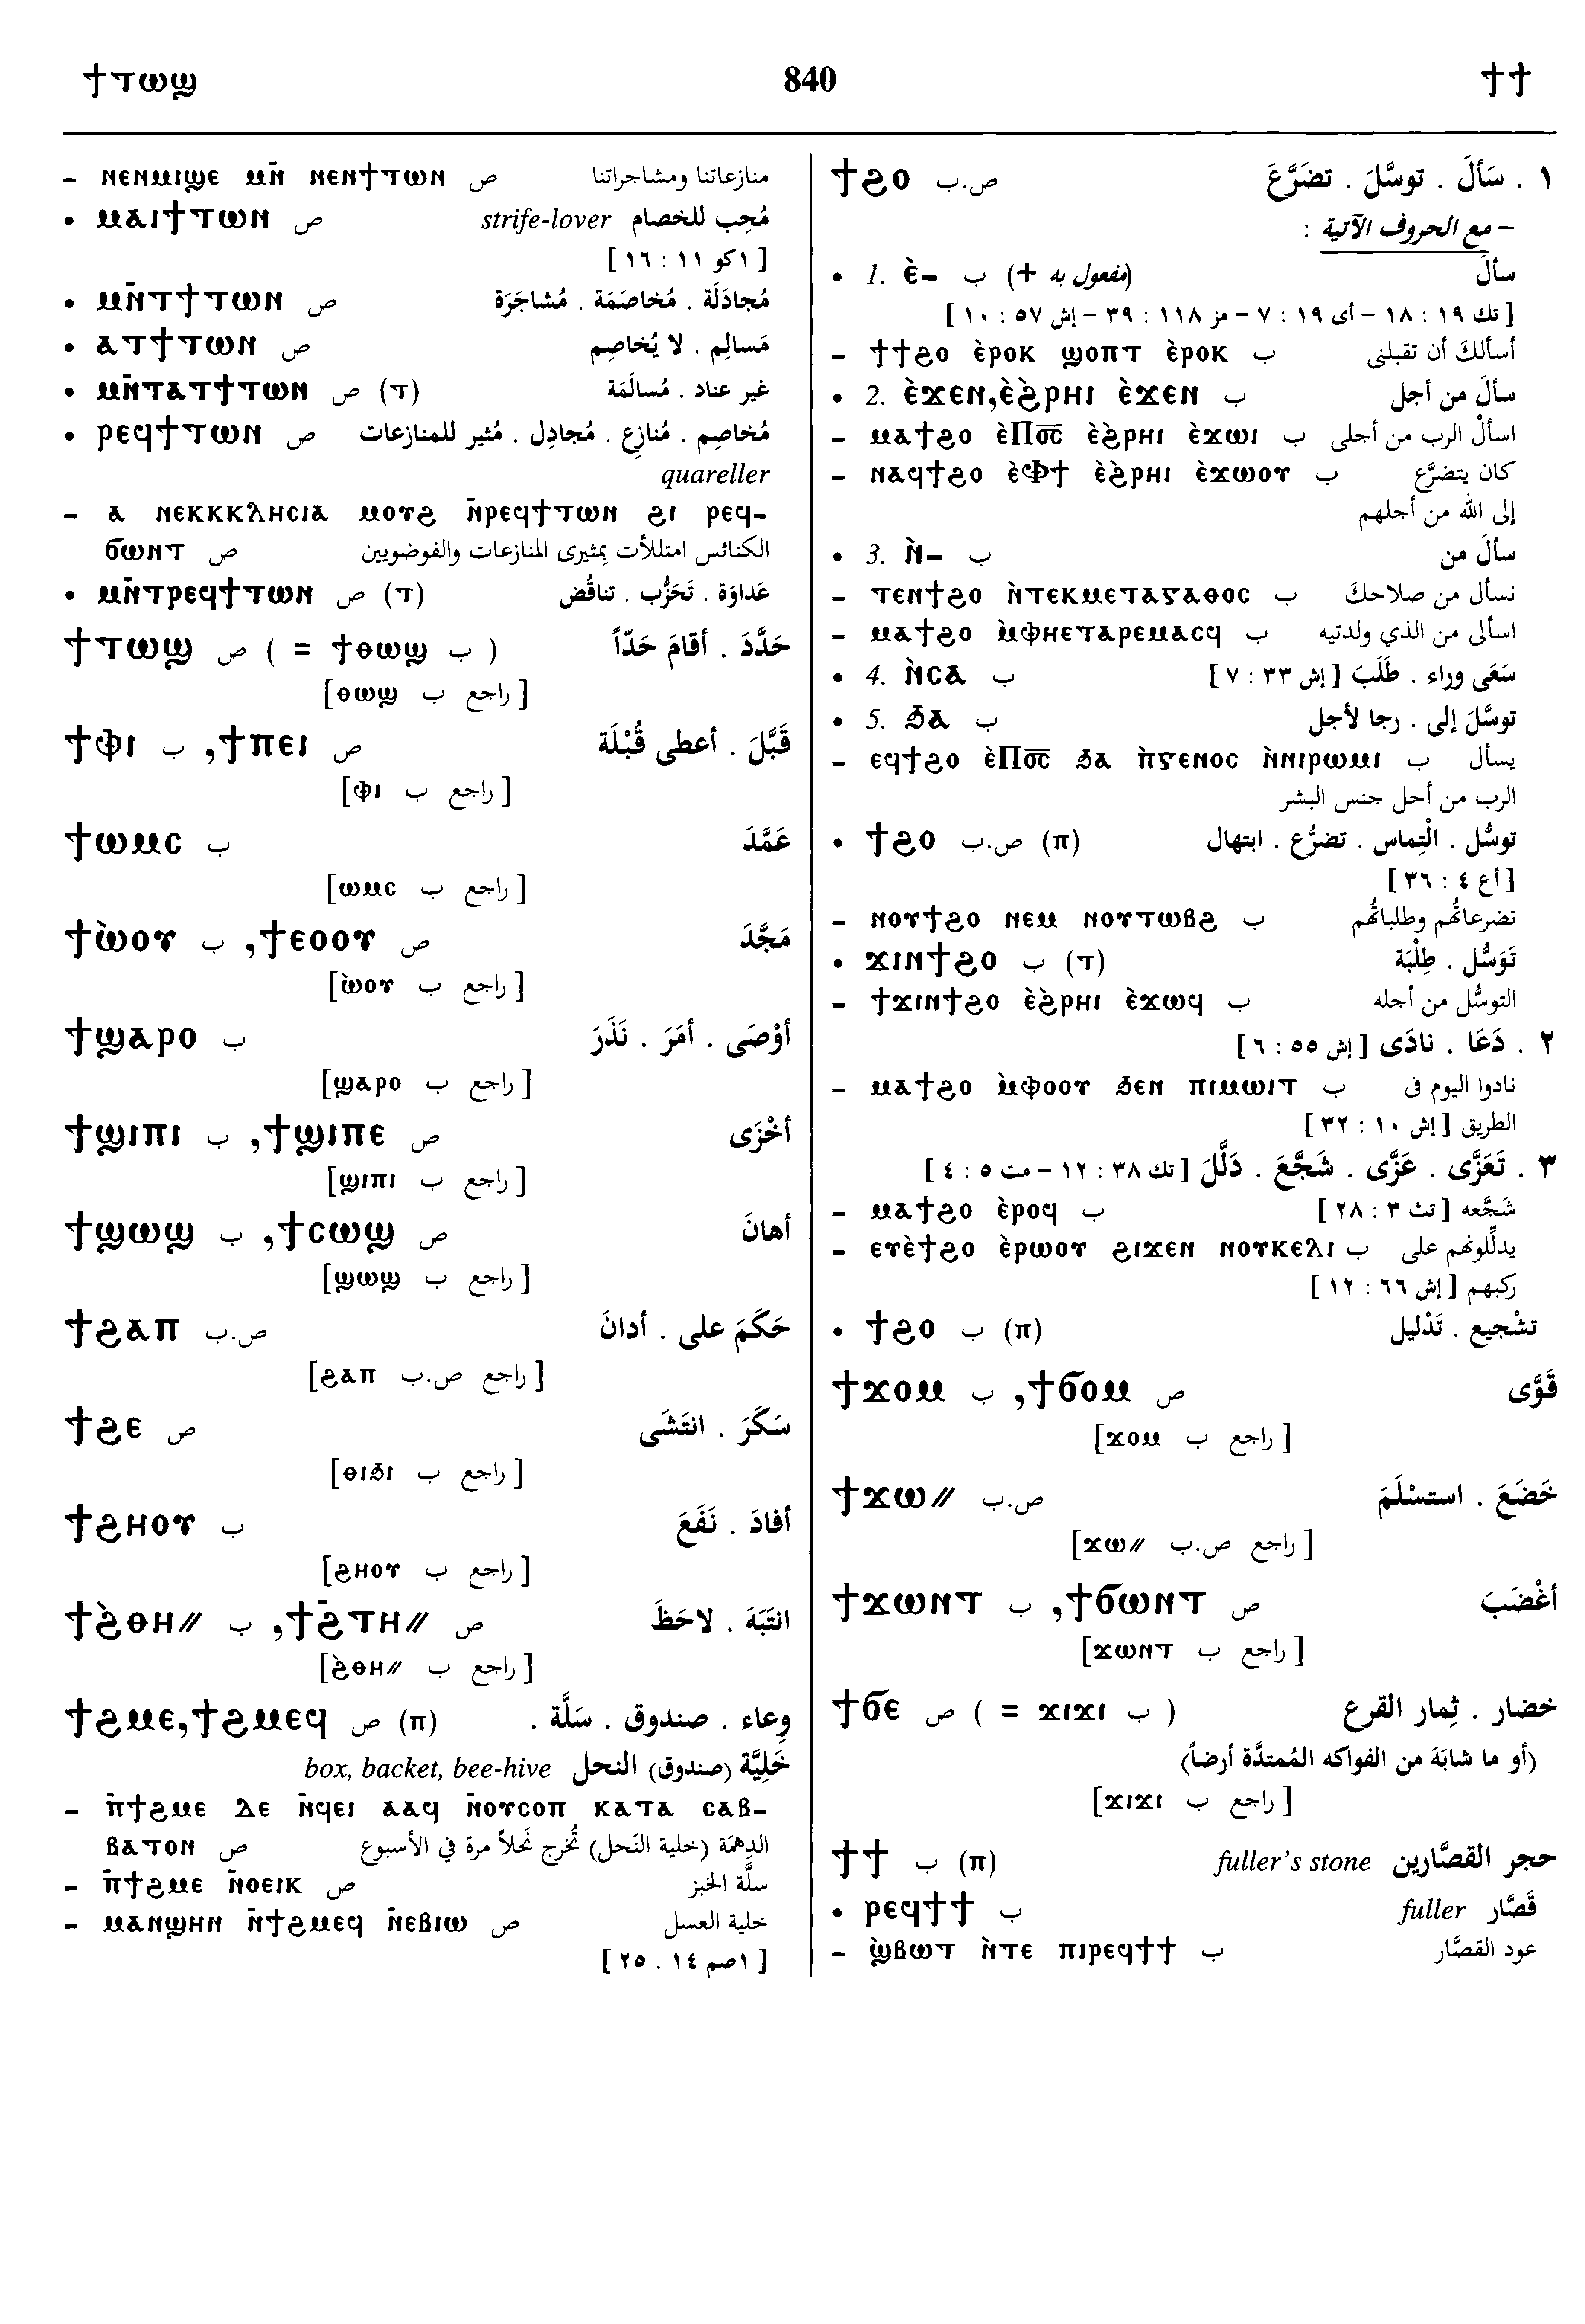 ϯⲧⲱϣ 840 ϯϯ
– ⲛⲉⲛⲙⲓϣⲉ ⲙⲛ̄ ⲛⲉⲛϯⲧⲱⲛ ص منازعاتنا ومشاجراتنا
• ⲙⲁⲓϯⲧⲱⲛ ص strife-lover مُحِب للخصام
[ ١كو ١١ : ١٦ ]
• ⲙⲛ̄ⲧϯⲧⲱⲛ ص مُجادَلَة . مُخاصَمَة . مُشاجَرَة
• ⲁⲧϯⲧⲱⲛ ص مَسالِم . لا يُخاصِم
• ⲙⲛ̄ⲧⲁⲧϯⲧⲱⲛ ص (ⲧ) غير عناد . مُسالَمَة
• ⲣⲉϥϯⲧⲱⲛ ص مُخاصِم . مُنازِع . مُجادِل . مُثير للمنازعات
quareller
– ⲁ ⲛⲉⲕⲕⲕⲗⲏⲥⲓⲁ ⲙⲟⲩϩ ⲛ̄ⲣⲉϥϯⲧⲱⲛ ϩⲓ ⲣⲉϥ–
ϭⲱⲛⲧ ص الكنائس امتلأت بمثيرى المنازعات والفوضويين
• ⲙⲛ̄ⲧⲣⲉϥϯⲧⲱⲛ ص (ⲧ) عَداوَة . تَحَزُّب . تناقُض
ϯⲧⲱϣ ص ( = ϯⲑⲱϣ ب ) حَدَّدَ . أقامَ حَدّاً
[ⲑⲱϣ ب راجع ]
ϯⲫⲓ ب ,ϯⲡⲉⲓ ص قَبَّلَ . أعطى قُبْلَة
[ⲫⲓ ب راجع ]
ϯⲱⲙⲥ ب عَمَّدَ
[ⲱⲙⲥ ب راجع ]
ϯⲱ̀ⲟⲩ ب ,ϯⲉⲟⲟⲩ ص مَجَّدَ
[ⲱ̀ⲟⲩ ب راجع ]
ϯϣⲁⲣⲟ ب أوْصَى . أمَرَ . نَذَرَ
[ϣⲁⲣⲟ ب راجع ]
ϯϣⲓⲡⲓ ب ,ϯϣⲓⲡⲉ ص أخْزَى
[ϣⲓⲡⲓ ب راجع ]
ϯϣⲱϣ ب ,ϯⲥⲱϣ ص أهانَ
[ϣⲱϣ ب راجع ]
ϯϩⲁⲡ ص.ب حَكَمَ على . أدانَ
[ϩⲁⲡ ص.ب راجع ]
ϯϩⲉ ص سَكَرَ . انتَشَى
[ⲑⲓϧⲓ ب راجع ]
ϯϩⲏⲟⲩ ب أفادَ . نَفَعَ
[ϩⲏⲟⲩ ب راجع ]
ϯϩ̀ⲑⲏ// ب ,ϯϩ̄ⲧⲏ// ص انتَبَهَ . لاحَظَ
[ϩ̀ⲑⲏ// ب راجع ]
ϯϩⲙⲉ,ϯϩⲙⲉϥ ص (ⲡ) وِعاء . صندوق . سَلَّة .
box, backet, bee-hive خَلِيَّة (صندوق) النحل
– ⲡ̄ϯϩⲙⲉ ⲇⲉ ⲛ̄ϥⲉⲓ ⲁⲁϥ ⲛ̄ⲟⲩⲥⲟⲡ ⲕⲁⲧⲁ ⲥⲁⲃ–
ⲃⲁⲧⲟⲛ ص الدهمَة (خلية النَحل) تُخرج نَحلاً مرة في الأسبوع
– ⲡ̄ϯϩⲙⲉ ⲛ̄ⲟⲉⲓⲕ ص سلَّة الخبز
– ⲙⲁⲛϣⲏⲛ ⲛ̄ϯϩⲙⲉϥ ⲛ̄ⲉⲃⲓⲱ ص خلية العسل
[ ١صم ١٤ . ٢٥ ]
ϯϩⲟ ص.ب ١ . سَألَ . توسَّلَ . تضَرَّعَ
– مع الحروف الآتية :
• 1. ⲉ̀– ب (+ مفعول به) سألَ
[ تك ١٩ : ١٨ – أى ١٩ : ٧ – مز ١١٨ : ٣٩ – إش ٥٧ : ١٠ ]
– ϯϯϩⲟ ⲉ̀ⲣⲟⲕ ϣⲟⲡⲧ ⲉ̀ⲣⲟⲕ ب أسألكَ أن تقبلنى
• 2. ⲉ̀ϫⲉⲛ,ⲉ̀ϩ̀ⲣⲏⲓ ⲉ̀ϫⲉⲛ ب سألَ من أجل
– ⲙⲁϯϩⲟ ⲉ̀Ⲡⲟ̅ⲥ̅ ⲉ̀ϩ̀ⲣⲏⲓ ⲉ̀ϫⲱⲓ ب اسألْ الرب من أجلى
– ⲛⲁϥϯϩⲟ ⲉ̀Ⲫϯ ⲉ̀ϩ̀ⲣⲏⲓ ⲉ̀ϫⲱⲟⲩ ب كان يتضرَّع
إلى الله من أجلهم
• 3. ⲛ̀– ب سألَ من
– ⲧⲉⲛϯϩⲟ ⲛ̀ⲧⲉⲕⲙⲉⲧⲁⲅⲁⲑⲟⲥ ب نسأل من صلاحكَ
– ⲙⲁϯϩⲟ ⲙ̀ⲫⲏⲉⲧⲁⲣⲉⲙⲁⲥϥ ب اسألى من الذي ولدتيه
• 4. ⲛ̀ⲥⲁ ب سَعَى وراء . طَلَبَ [ إش ٣٣ : ٧ ]
• 5. ϧⲁ ب توسَّلَ إلى . رجا لأجل
– ⲉϥϯϩⲟ ⲉ̀Ⲡⲟ̅ⲥ̅ ϧⲁ ⲡ̀ⲅⲉⲛⲟⲥ ⲛ̀ⲛⲓⲣⲱⲙⲓ ب يسأل
الرب من أحل جنس البشر
• ϯϩⲟ ص.ب (ⲡ) توسُّل . الْتِماس . تضرُّع . ابتهال
[ أع ٤ : ٣٦ ]
– ⲛⲟⲩϯϩⲟ ⲛⲉⲙ ⲛⲟⲩⲧⲱⲃϩ ب تضرعاتُهم وطلباتُهم
• ϫⲓⲛϯϩⲟ ب (ⲧ) تَوَسُّل . طِلْبَة
– ϯϫⲓⲛϯϩⲟ ⲉ̀ϩ̀ⲣⲏⲓ ⲉ̀ϫⲱϥ ب التوسُّل من أجله
٢ . دَعَا . نادَى [ إش ٥٥ : ٦ ]
– ⲙⲁϯϩⲟ ⲙ̀ⲫⲟⲟⲩ ϧⲉⲛ ⲡⲓⲙⲱⲓⲧ ب نادوا اليوم فى
الطريق [ إش ١٠ : ٣٢ ]
٣ . تَعَزَّى . عَزَّى . شَجَّعَ . دَلَّلَ [ تك ٣٨ : ١٢ – مت ٥ : ٤ ]
– ⲙⲁϯϩⲟ ⲉ̀ⲣⲟϥ ب شَجَّعه [ تث ٣ : ٢٨ ]
– ⲉⲩⲉ̀ϯϩⲟ ⲉ̀ⲣⲱⲟⲩ ϩⲓϫⲉⲛ ⲛⲟⲩⲕⲉⲗⲓ ب يدلِّلونهم على
ركبهم [ إش ٦٦ : ١٢ ]
• ϯϩⲟ ب (ⲡ) تشْجيع . تَدْليل
ϯϫⲟⲙ ب ,ϯϭⲟⲙ ص قَوَّى
[ϫⲟⲙ ب راجع ]
ϯϫⲱ// ص.ب خَضَعَ . استسْلَمَ
[ϫⲱ// ص.ب راجع ]
ϯϫⲱⲛⲧ ب ,ϯϭⲱⲛⲧ ص أغْضَبَ
[ϫⲱⲛⲧ ب راجع ]
ϯϭⲉ ص ( = ϫⲓϫⲓ ب ) خضار . ثِمار القرع
(أو ما شابَهَ من الفواكه المُمتدَّة أرضاً)
[ϫⲓϫⲓ ب راجع ]
ϯϯ ب (ⲡ) fuller's stone حجر القصَّارين
• ⲣⲉϥϯϯ ب fuller قَصَّار
– ϣ̀ⲃⲱⲧ ⲛ̀ⲧⲉ ⲡⲓⲣⲉϥϯϯ ب عود القصَّار